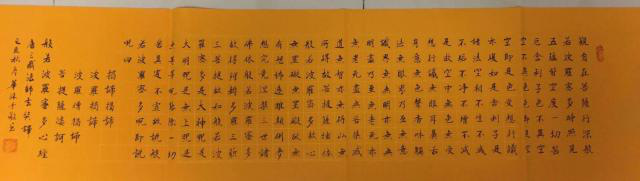 觀自在菩薩行深般
若波羅蜜多時照見
五蘊皆空度一切苦
厄舍利子色不異空
空不異色色即是空
空即是色受想行識
亦復如是舍利子是
諸法空相不生不滅
不垢不淨不增不減
是故空中無色無受
想行識無眼耳鼻舌
身意無色聲香味觸
法無眼界乃至無意
識界無無明亦無無
明盡乃至無老死亦
無老死盡無苦集滅
道無智亦無得以無
所得故菩提薩埵依
般若波羅蜜多故心
無罣礙無罣礙故無
有恐怖遠離顛倒夢
想究竟涅槃三世諸
佛依般若波羅蜜多
故得阿耨多羅三藐
三菩提故知般若波
羅蜜多是大神咒是
大明咒是無上咒是
無等等咒能除一切
苦真實不虛故說般
若波羅蜜多咒即說
咒曰
揭諦揭諦
波羅揭諦
波羅僧揭諦
菩提薩婆訶
般若波羅蜜多心經
唐三藏法師玄奘譯